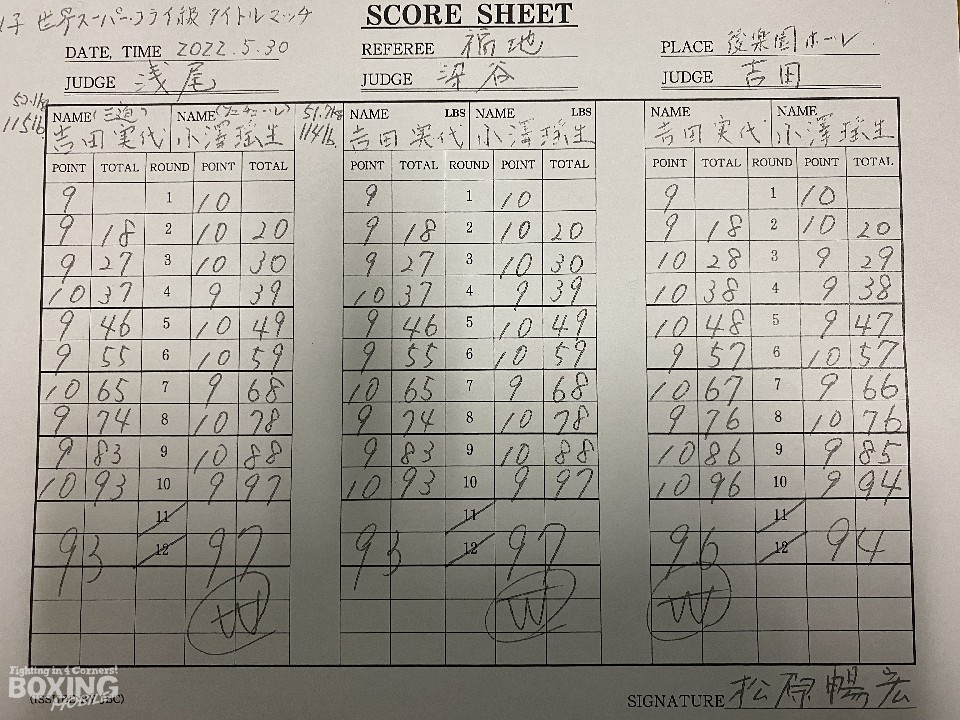 SCORE SHEET
子 世界スーパーフライ級 タイトルマッチ
DATE, TIME 2022.5.30 REFEREE 福地 PLACE 後楽園ホール.
JUDGE 浅尾 JUDGE 染谷 JUDGE 吉田
52.1kg 115lb NAME (三迫) NAME 51.7kg 114lb NAME LBS NAME LBS NAME NAME
吉田実代 小澤瑶生 吉田実代 小澤瑶生 吉田実代 小澤瑶生
POINT TOTAL ROUND POINT TOTAL POINT TOTAL ROUND POINT TOTAL POINT TOTAL ROUND POINT TOTAL
9 1 10 9 1 10 9 1 10
9 18 2 10 20 9 18 2 10 20 9 18 2 10 20
9 27 3 10 30 9 27 3 10 30 10 28 3 9 29
10 37 4 9 39 10 37 4 9 39 10 38 4 9 38
9 46 5 10 49 9 46 5 10 49 10 48 5 9 47
9 55 6 10 59 9 55 6 10 59 9 57 6 10 57
10 65 7 9 68 10 65 7 9 68 10 67 7 9 66
9 74 8 10 78 9 74 8 10 78 9 76 8 10 76
9 83 9 10 88 9 83 9 10 88 10 86 9 9 85
10 93 10 9 97 10 93 10 9 97 10 96 10 9 94
11 11 11
93 12 97 93 12 97 96 12 94
W W W
Fighting in 4 Corners!
BOXING
SIGNATURE 松原暢宏